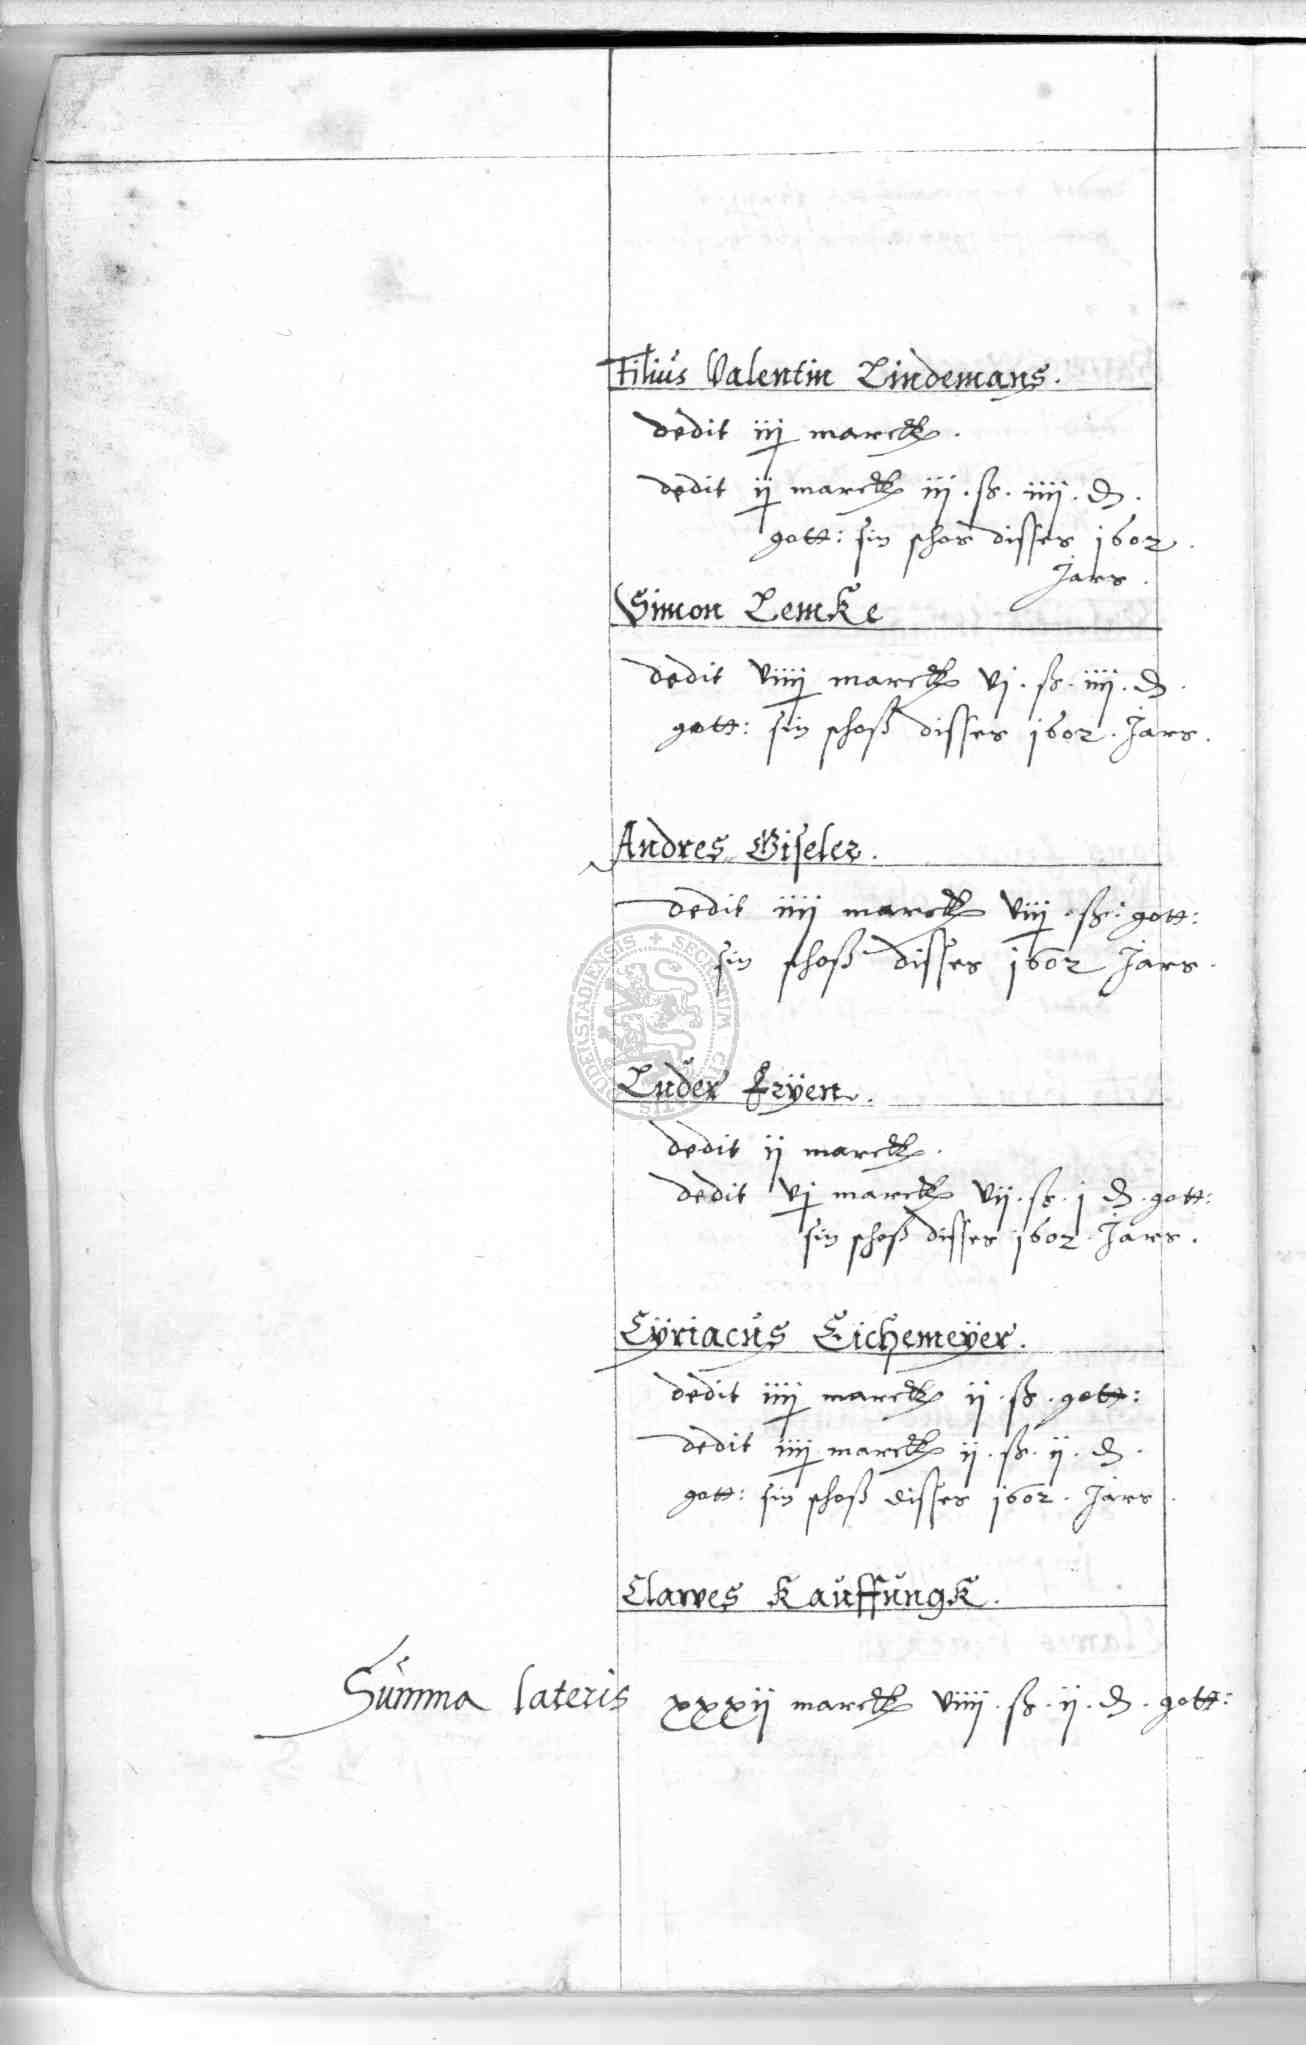 Filius Valentin Lindemans.
dedit iij marck.
dedit ij marck iij. ß. iiij. d.
gott: sin schos disses 1602.
Jars.
Simon Lemke
dedit viiij marck vj. ß. iiij. d.
gott: sin schoß disses 1602. Jars.
Andres Giseler.
dedit iiij marck viij. ß. gott:
sin schoß disses 1602 Jars.
Luder Fryen.
dedit ij marck.
dedit vj marck vij. ß. j d. gott:
sin schoß disses 1602. Jars.
Cÿriacus Eichemeÿer.
dedit iiij marck ij. ß. gott:
dedit iiij marck ij. ß. ij. d.
gott: sin schoß disses 1602. Jars.
Clawes Kauffungk.
Summa lateris xxxij marck viiij. ß. ij. d. gott:
SECRETUM CIVITATIS DUDERSTADIENSIS